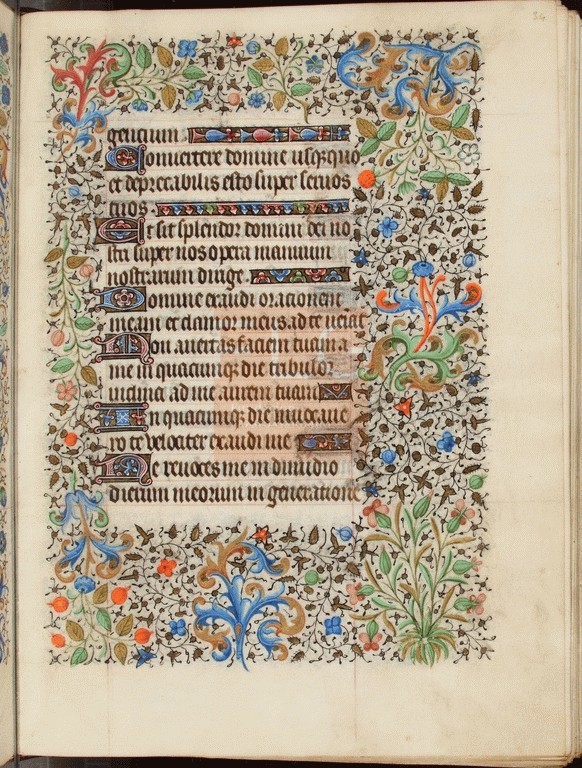 34
gencium.
Convertere domine usq̃quo
et deprecabilis esto super seruos
tuos.
Et sit splendor domini dei no
stri super nos opera manuum
nostrarum dirige.
Domine exaudi orationem
meam et clamor meus ad te veniat
Non auertas faciem tuam a
me in quacumq̃ die tribulor
inclina ad me aurem tuam
In quacumq̃ die inuocaue
ro te velociter exaudi me
Ne reuoces me in dimidio
dierum meorum in generatione